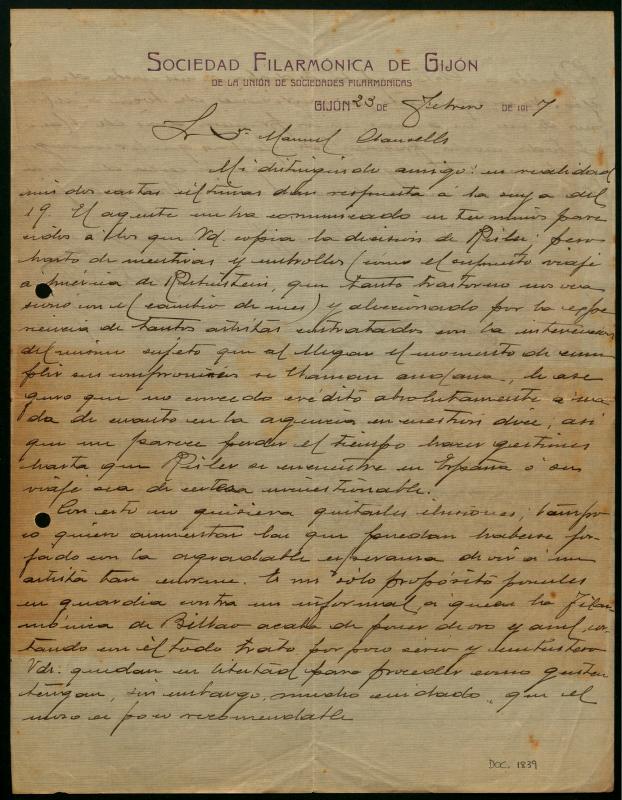 SOCIEDAD FILARMÓNICA DE GIJÓN
DE LA UNIÓN DE SOCIEDADES FILARMÓNICAS
GIJÓN 23 DE Febrero DE 1917
Sr. Dn. Manuel Clausells
Mi distinguido amigo: en realidad
mis dos cartas últimas dan respuesta á la suya del
19. El agente me ha comunicado en términos pare
cidos á los que Vd. copia la decisión de Risler; pero
harto de mentiras y embrollos (como el supuesto viaje
á América de Rubinstein, que tanto trastorno nos oca
sionó con el cambio de mes) y aleccionado por la expe
riencia de tantos artistas contratados con la intervención
del mismo sujeto que al llegar el momento de cum
plir sus compromisos se llaman andana, le ase
guro que no concedo crédito absolutamente á na
da de cuanto en la agencia en cuestión dice, así
que me parece perder el tiempo hacer gestiones
hasta que Risler se encuentre en España ó su
viaje sea de certeza incuestionable.
Con esto no quisiera quitarles ilusiones; tampo
co quiero aumentar las que puedan haberse for
jado con la agradable esperanza de oir á un
artista tan enorme. Es mi sólo propósito ponerles
en guardia contra un informal, a quien la Filar
mónica de Bilbao acaba de poner de oro y azul, cor
tando con él todo trato por poco serio y embustero
Vds. quedan en libertad para proceder como gusten
tengan, sin embargo, mucho cuidado, que el
mozo es poco recomendable
DOC. 1839